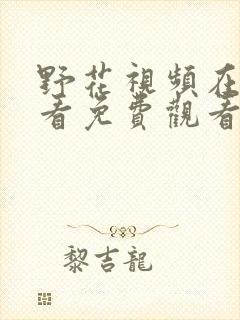 野花視頻在
看免費觀看
黎吉龍